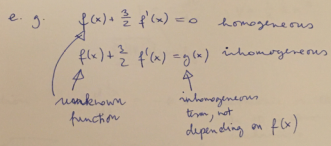 e. g. f(x) + 3/2 f'(x) = 0 homogeneous
f(x) + 3/2 f'(x) = g(x) inhomogeneous
unknown function
inhomogeneous term, not depending on f(x)